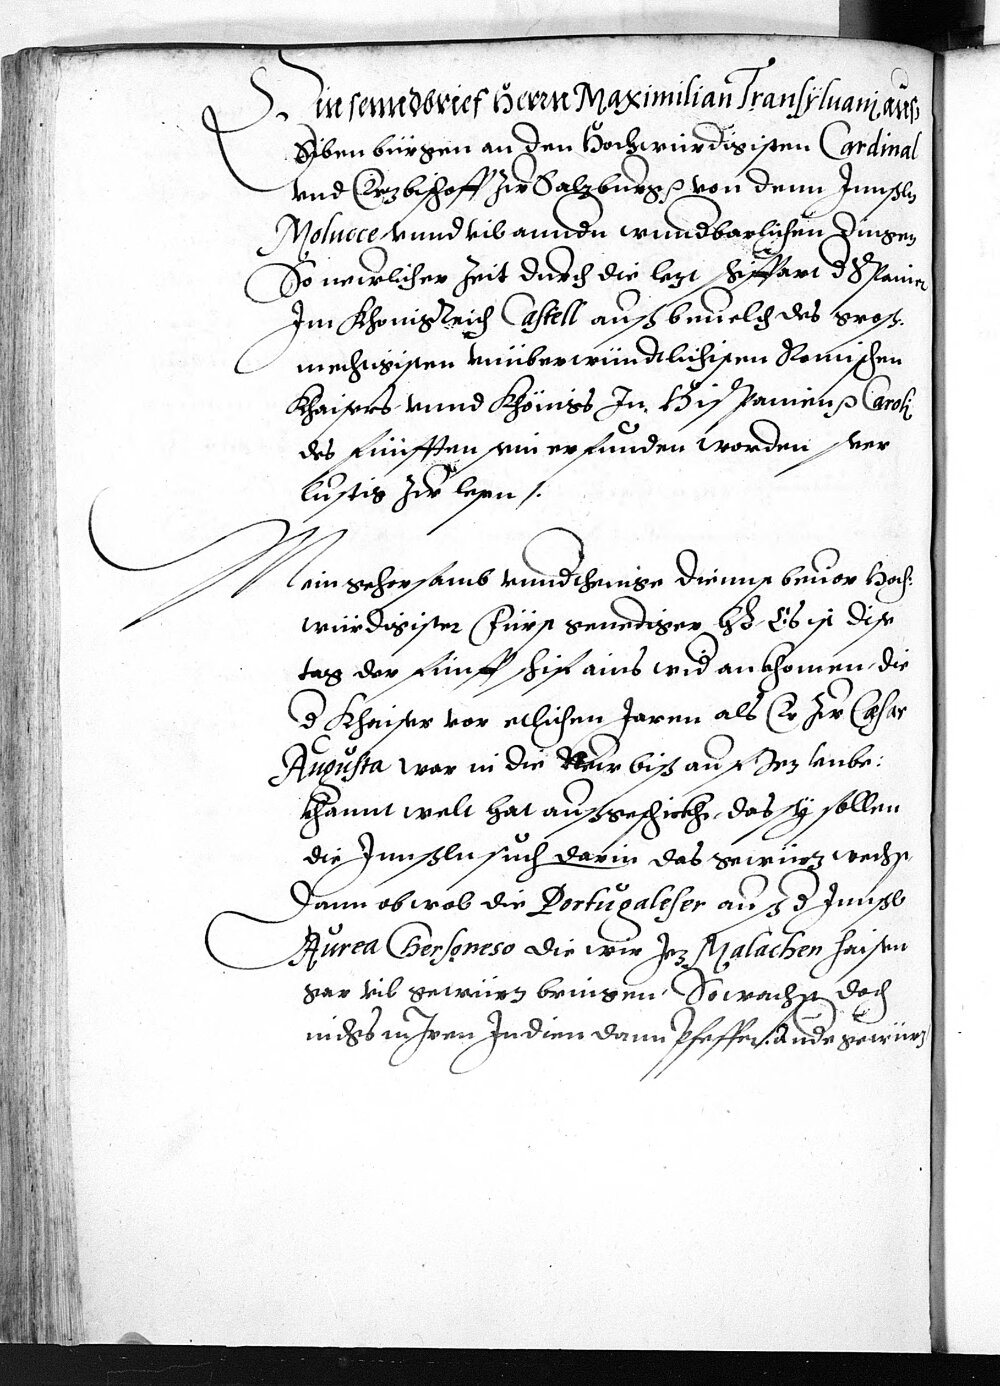 Ein senndbrief Herrn Maximilian Transÿluani, aus
Siben bürgen an den Hochwürdigisten Cardinal
vnd Ertzbischoff zw Saltzburg von denn Innsln
Molucce vnnd vil anndn wundbarlichen dingen
So newlicher zeit durch die lezt schiffart d Spanier
Im Khonigreich Castell auß beuelch des groß
mechtigisten vnüberwündtlichisten Romischen
Khaisers vnnd Khönigs In Hispanien Caroli
des fünfften sein erfunden worden ser
lustig zw lesen /.
Mein gehorsamb vnndthenige diennst beuor Hoch:
würdigister Fürst genediger hr Es ist dise
tag der fünff schif ains wid ankhomen die
d Khaiser vor etlichen Jaren als Er zw Cæsar
Augusta war in die New biß auf Jez vnbe:
khannt welt hat außgeschickht, das sy sollen
die Innsln such darin das gewürz wechst
Dann obwol die Portugaleser aus d Innsl
Aurea Chersoneso die wir Jez Malachen haisen
gar vil gewürz bringen So wachst doch
nichs in Iren Indien dann Pfeffer. Andr gewürz